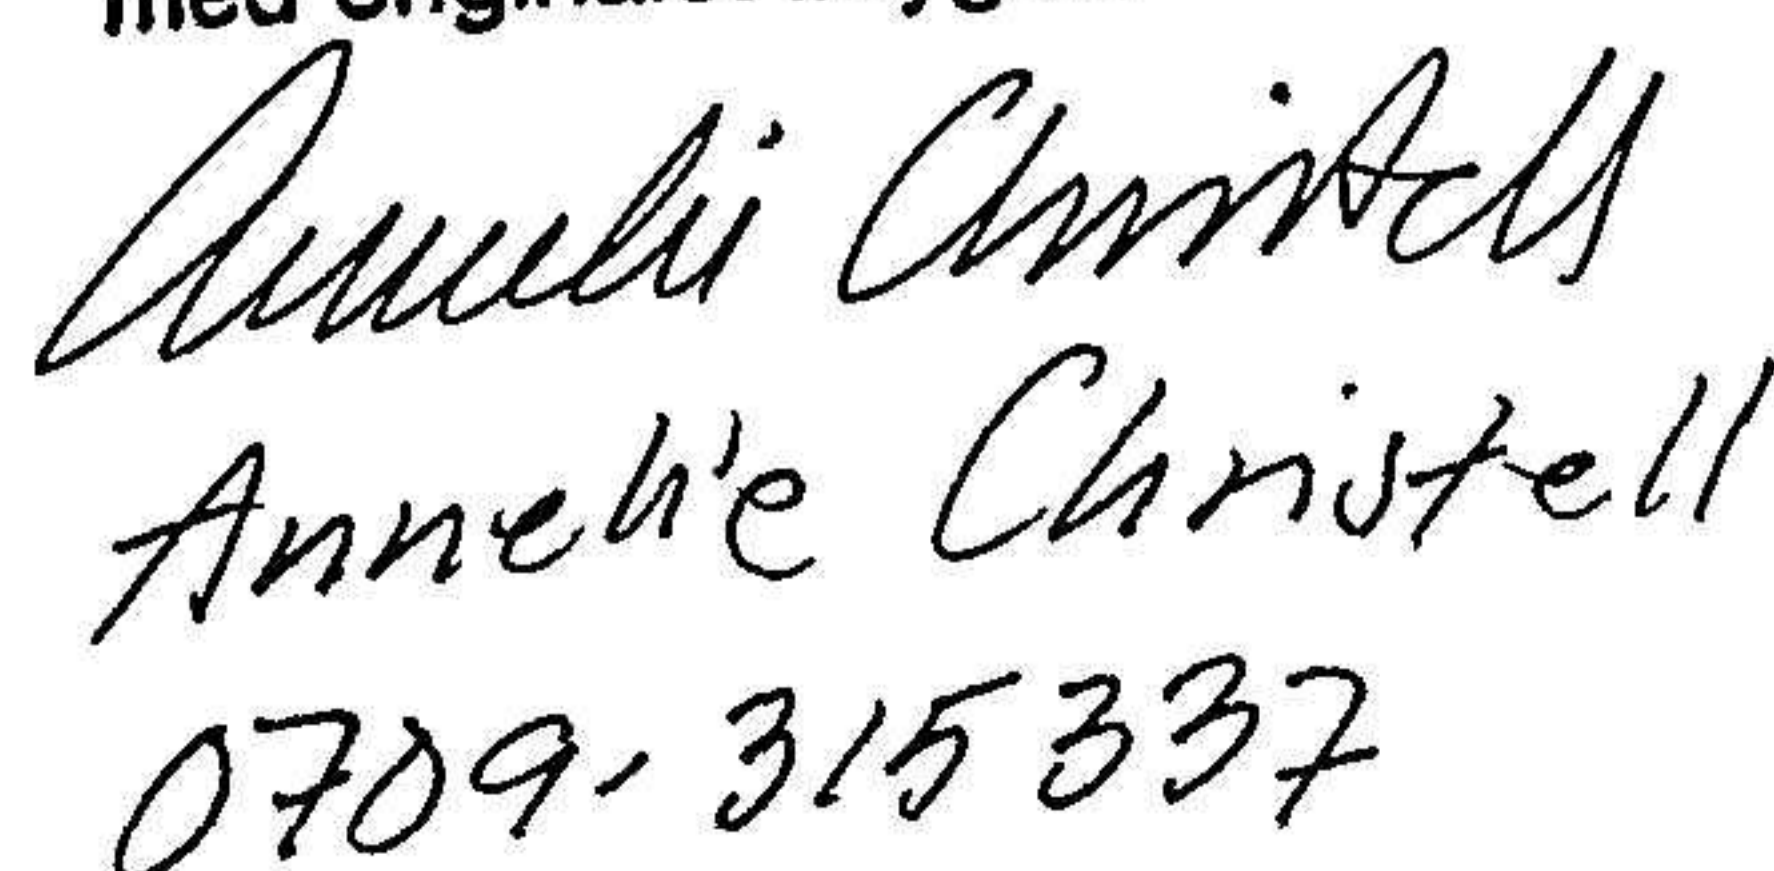 med
Annelie Christell
Annelie Christell
0709-315337